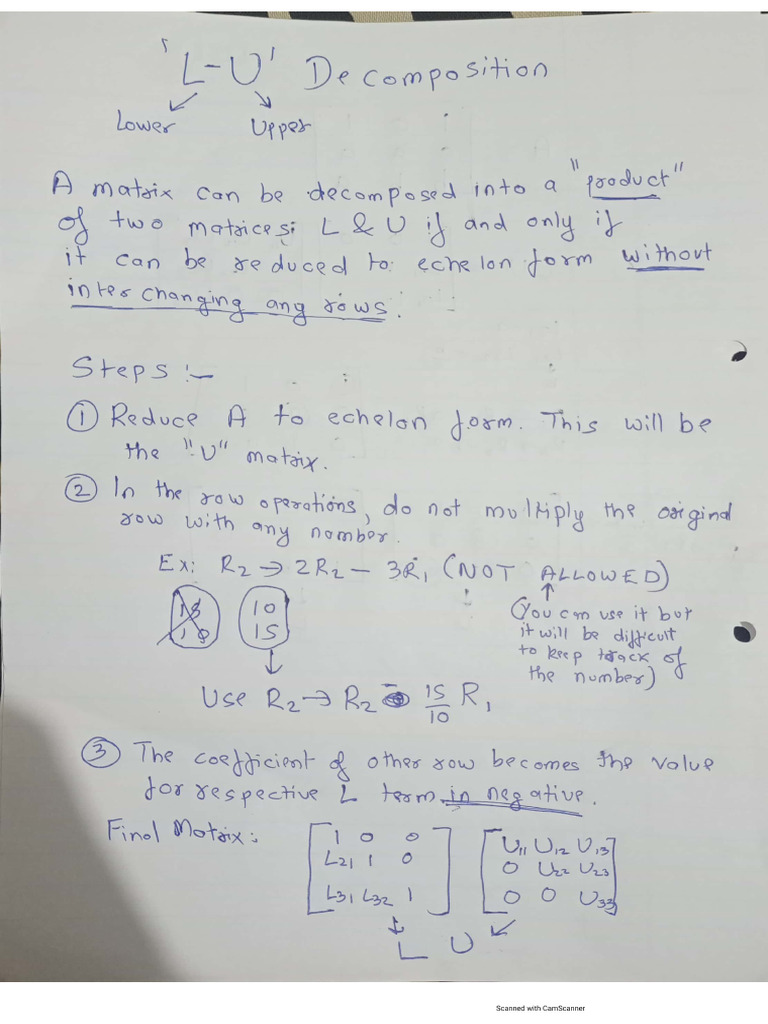 'L-U' Decomposition
Lower Upper
A matrix can be decomposed into a "product"
of two matrices: L & U if and only if
it can be reduced to echelon form without
interchanging any rows.
Steps :-
① Reduce A to echelon form. This will be
the "U" matrix.
② In the row operations, do not multiply the original
row with any number.
Ex: R₂ → 2R₂ - 3R₁ (NOT ALLOWED)
10
15
(You can use it but
it will be difficult
to keep track of
the number)
Use R₂ → R₂ - 15/10 R₁
③ The coefficient of other row becomes the value
for respective L term in negative.
Final Matrix:
1 0 0 U₁₁ U₁₂ U₁₃
L₂₁ 1 0 0 U₂₂ U₂₃
L₃₁ L₃₂ 1 0 0 U₃₃
L U
Scanned with CamScanner